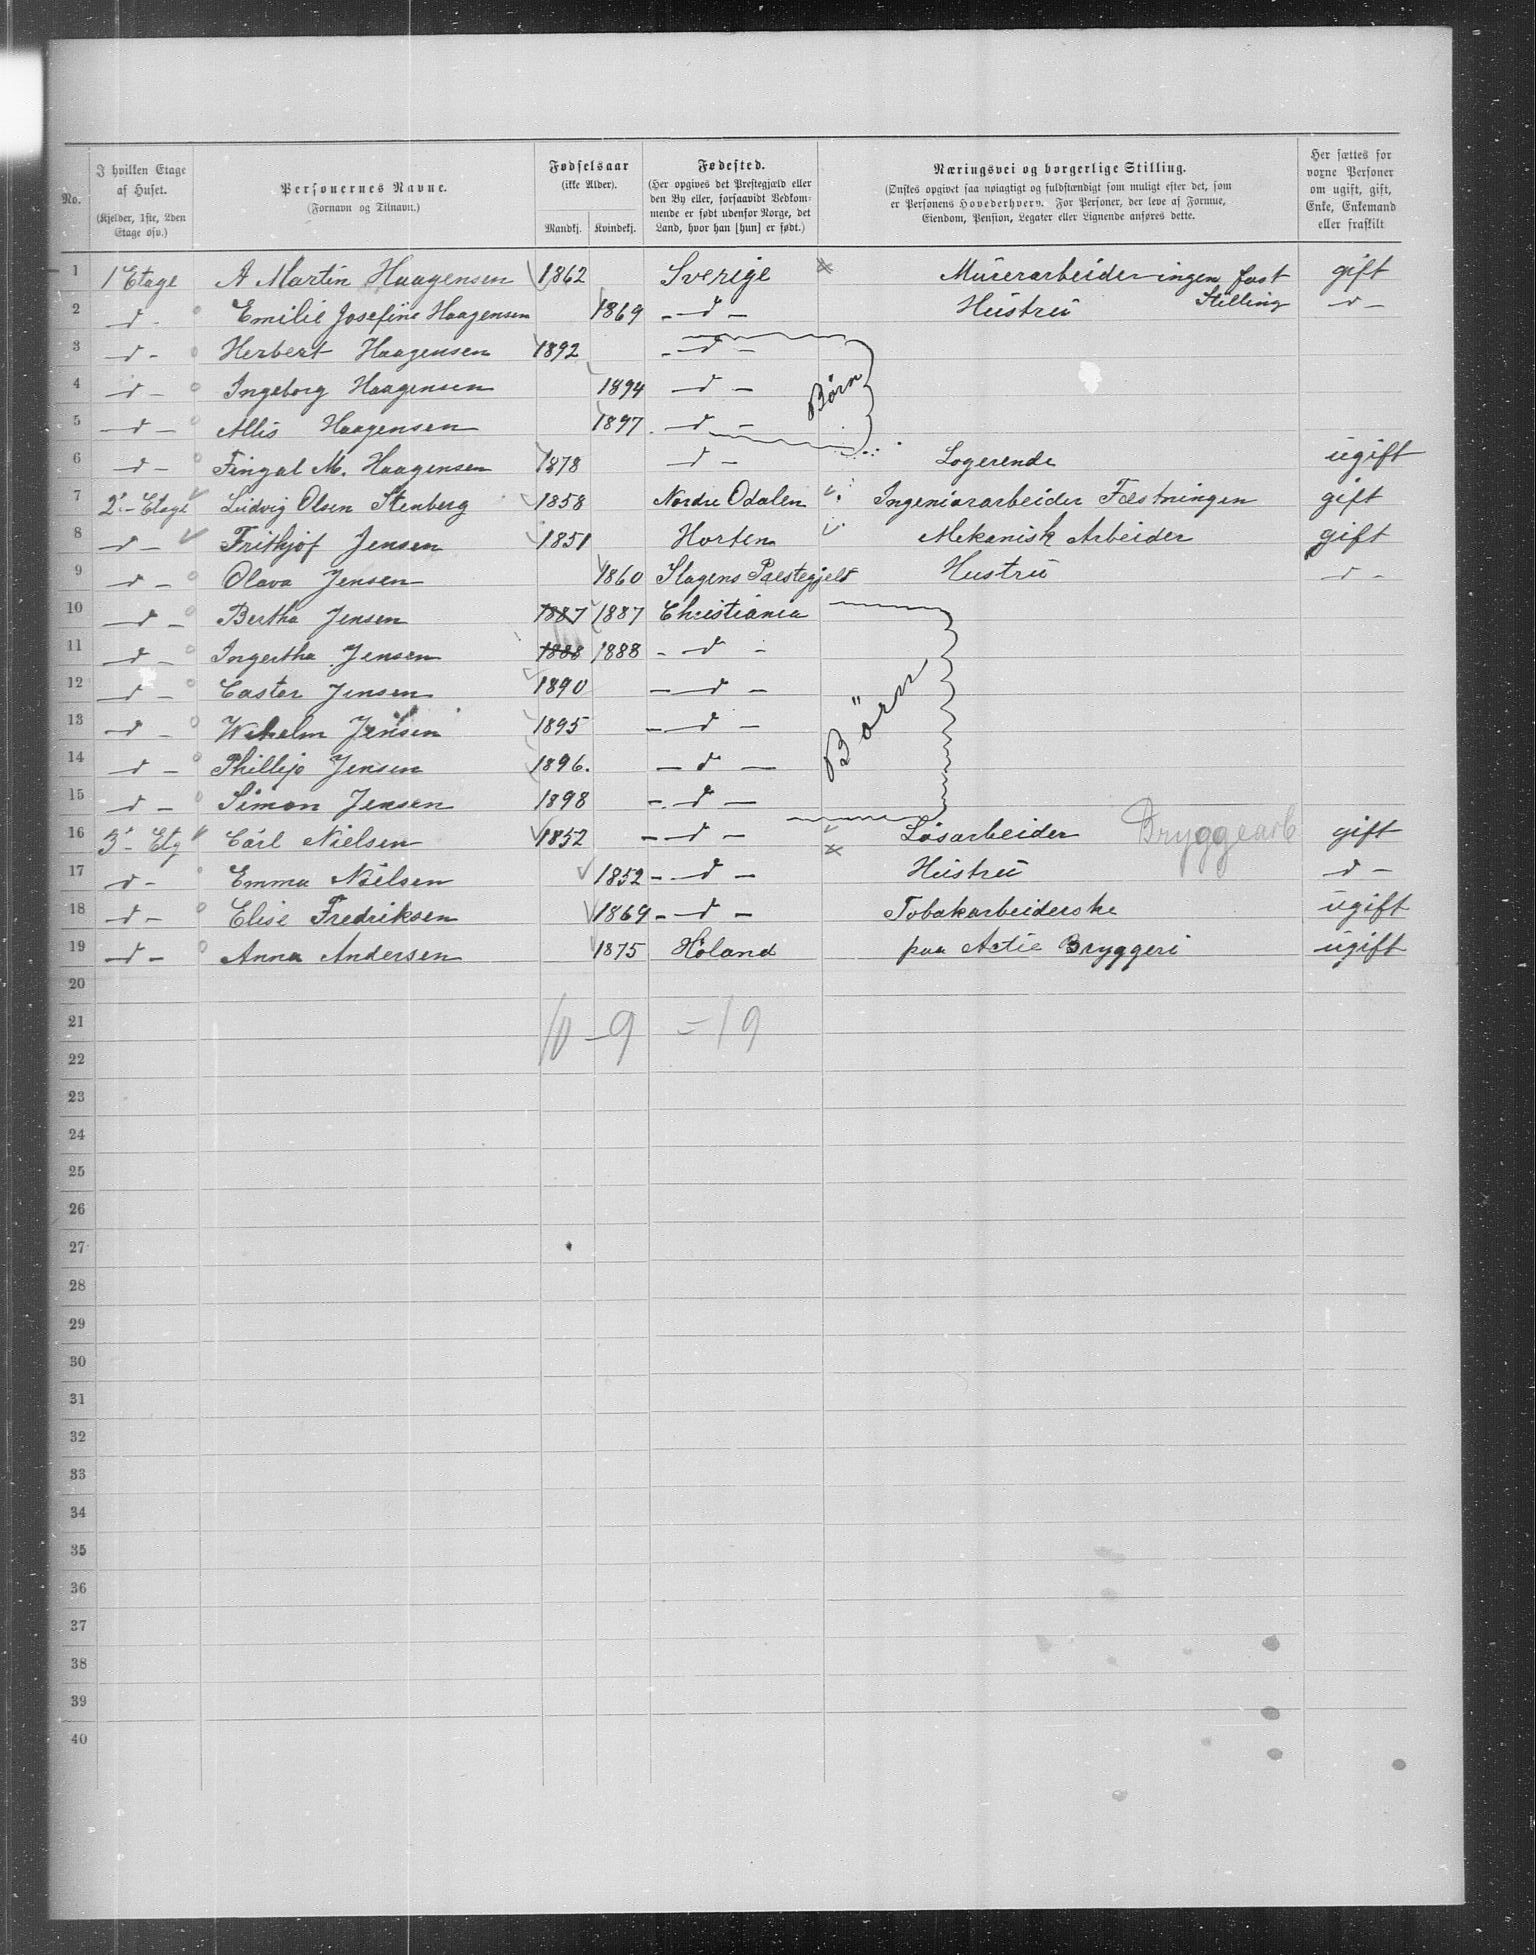 No.
I hvilken Etage af Huset.
(Kjelder, 1ste, 2den Etage osv.)
Personernes Navne.
(Fornavn og Tilnavn.)
Fødselsaar
(ikke Alder).
Mandkj. Kvindekj.
Fødested.
(Her opgives det Prestegjæld eller den By eller, forsaavidt Vedkommende er født udenfor Norge, det Land, hvor han [hun] er født.)
Næringsvei og borgerlige Stilling.
(Ønskes opgivet saa nøiagtigt og fuldstændigt som muligt efter det, som er Personens Hovederhverv. For Personer, der leve af Formue, Eiendom, Pension, Legater eller Lignende anføres dette.
Her sættes for voxne Personer om ugift, gift, Enke, Enkemand eller fraskilt
1 1 Etage A Martin Haagensen 1862 Sverige Murerarbeider-ingen fast Stilling gift
2 d - Emilie Josefine Haagensen 1869 - d - Hustru d -
3 d - Herbert Haagensen 1892 - d -
4 d - Ingeborg Haagensen 1894 - d - Børn
5 d - Allis Haagensen 1897 - d -
6 d - Fingal M. Haagensen 1878 d - Logerende ugift
7 2'-Etage Ludvig Olsen Stenberg 1858 Nordre Odalen Ingeniørarbeider Fæstningen gift
8 d - Frithjof Jensen 1851 Horten Mekanisk Arbeider gift
9 d - Olava Jensen 1860 Slagens Præstegjeld Hustru d -
10 d - Bertha Jensen 1887 1887 Christiania
11 d - Ingertha Jensen 1888 1888 - d -
12 d - Castor Jensen 1890 - d -
13 d - Wihelm Jensen 1895 - d - Børn
14 d - Phillip Jensen 1896. - d -
15 d - Simon Jensen 1898 - d -
16 3'- Etg Carl Nielsen 1852 - d - Løsarbeider Bryggearb gift
17 d - Emma Nielsen 1852 - d - Hustru d -
18 d - Elise Fredriksen 1869 - d - Tobakarbeiderske ugift
19 d - Anna Andersen 1875 Høland paa Actie Bryggeri ugift
20
21 10 - 9 = 19
22
23
24
25
26
27
28
29
30
31
32
33
34
35
36
37
38
39
40